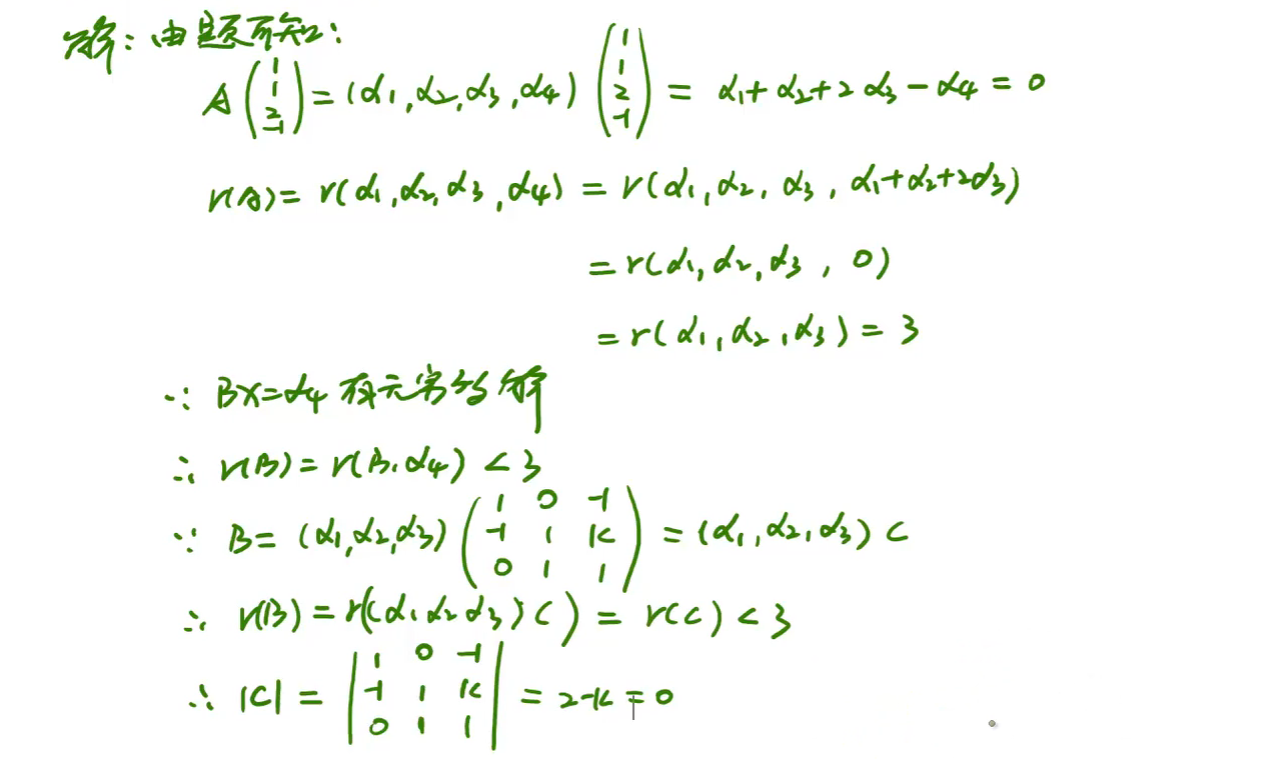 解：由题可知：
A(1 1 2 -1) = (α1, α2, α3, α4) (1 1 2 -1) = α1 + α2 + 2α3 - α4 = 0
r(A) = r(α1, α2, α3, α4) = r(α1, α2, α3, α1+α2+2α3)
= r(α1, α2, α3, 0)
= r(α1, α2, α3) = 3
∵ BX=α4 有无穷多解
∴ r(B) = r(B, α4) < 3
∵ B = (α1, α2, α3) (1 0 -1 / -1 1 K / 0 1 1) = (α1, α2, α3) C
∴ r(B) = r((α1 α2 α3) C) = r(C) < 3
∴ |C| = |1 0 -1 / -1 1 K / 0 1 1| = 2-K = 0